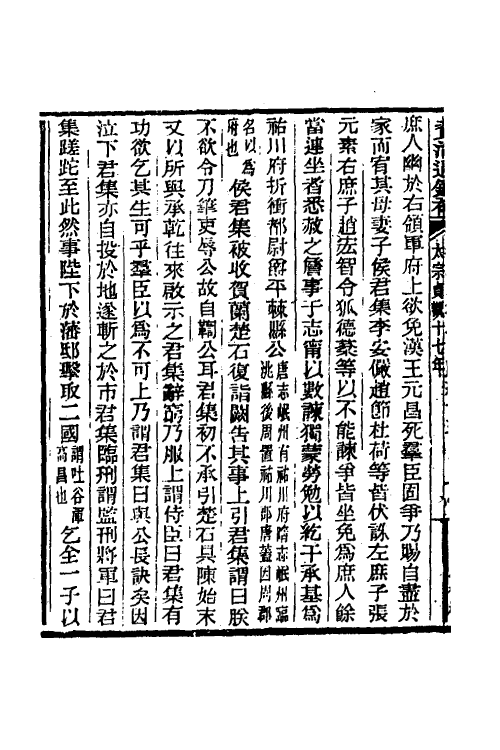 資治通鑑補 太宗貞觀十七年
庶人幽於右領軍府上欲免漢王元昌死羣臣固爭乃賜自盡於
家而宥其母妻子侯君集李安儼趙節杜荷等皆伏誅左庶子張
元素右庶子趙宏智令狐德棻等以不能諫爭皆坐免為庶人餘
當連坐者悉赦之詹事于志寧以數諫獨蒙勞勉以紇干承基為
祐川府折衝都尉爵平棘縣公唐志岷州有祐川府隋志岷州臨
洮縣後周置祐川郡唐蓋因周郡
名以為
府也侯君集被收賀蘭楚石復詣闕告其事上引君集謂曰朕
不欲令刀筆吏辱公故自鞫公耳君集初不承引楚石具陳始末
又以所與承乾往來啟示之君集辭窮乃服上謂侍臣曰君集有
功欲乞其生可乎羣臣以為不可上乃謂君集曰與公長訣矣因
泣下君集亦自投於地遂斬之於市君集臨刑謂監刑將軍曰君
集蹉跎至此然事陛下於藩邸擊取二國謂吐谷渾
高昌也乞全一子以